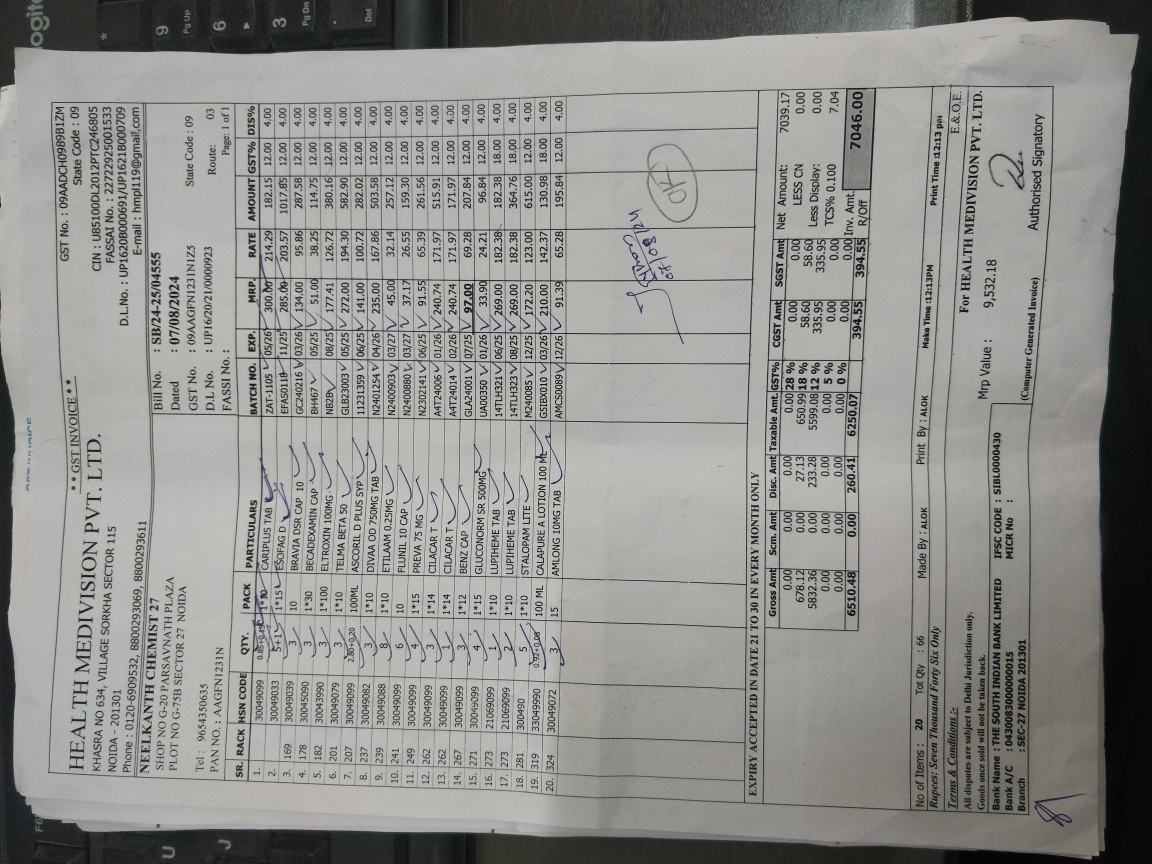 ** GST INVOICE **
HEALTH MEDIVISION PVT. LTD.
KHASRA NO 634, VILLAGE SORKHA SECTOR 115
NOIDA - 201301
Phone : 0120-6909532, 8800293069, 8800293611
GST No. : 09AADCH0989B1ZM
State Code : 09
CIN : U85100DL2012PTC246805
FASSAI No. : 22722925001533
D.L.No. : UP1620B000691/UP1621B000709
E-mail : hmpl119@gmail.com
NEELKANTH CHEMIST 27
SHOP NO G-20 PARSAVNATH PLAZA
PLOT NO G-75B SECTOR 27 NOIDA
Tel : 9654350635
PAN NO. : AAGFN1231N
Bill No. : SB/24-25/04555
Dated : 07/08/2024
GST No. : 09AAGFN1231N1Z5 State Code : 09
D.L No. : UP16/20/21/0000923 Route: 03
FASSI No. : Page: 1 of 1
SR. RACK HSN CODE QTY. PACK PARTICULARS BATCH NO. EXP. MRP. RATE AMOUNT GST% DIS%
1. 30049099 CARIPLUS TAB ZAT-1105 05/26 300.00 214.29 182.15 12.00 4.00
2. 30049033 5+1 1*15 ESOFAG D 11/25 285.00 203.57 1017.85 12.00 4.00
3. 169 30049039 3 10 BRAVIA DSR CAP 10 GC240216 03/26 134.00 95.86 287.58 12.00 4.00
4. 178 30045090 3 1*30 BECADEXAMIN CAP BH467 05/25 51.00 38.25 114.75 12.00 4.00
5. 182 30043990 3 1*100 ELTROXIN 100MG 08/25 177.41 126.72 380.16 12.00 4.00
6. 201 30049079 3 1*10 TELMA BETA 50 GLB23003 05/25 272.00 194.30 582.90 12.00 4.00
7. 207 30049099 2.80+0.20 100ML ASCORIL D PLUS SYP 11231359 06/25 141.00 100.72 282.02 12.00 4.00
8. 237 30049082 3 1*10 DIVAA OD 750MG TAB N2401254 04/26 235.00 167.86 503.58 12.00 4.00
9. 239 30049088 8 1*10 ETILAAM 0.25MG N2400903 03/27 45.00 32.14 257.12 12.00 4.00
10. 241 30049099 6 10 FLUNIL 10 CAP N2400880 03/27 37.17 26.55 159.30 12.00 4.00
11. 249 30049099 4 1*15 PREVA 75 MG N2302141 06/25 91.55 65.39 261.56 12.00 4.00
12. 262 30049099 3 1*14 CILACAR T A4T24006 01/26 240.74 171.97 515.91 12.00 4.00
13. 262 30049099 1 1*14 CILACAR T A4T24014 02/26 240.74 171.97 171.97 12.00 4.00
14. 267 30049099 3 1*12 BENZ CAP GLA24001 07/25 97.00 69.28 207.84 12.00 4.00
15. 271 30049099 4 1*15 GLUCONORM SR 500MG UA00350 01/26 33.90 24.21 96.84 12.00 4.00
16. 273 21069099 1 1*10 LUPIHEME TAB 14TLH321 06/25 269.00 182.38 182.38 18.00 4.00
17. 273 21069099 2 1*10 LUPIHEME TAB 14TLH323 08/25 269.00 182.38 364.76 18.00 4.00
18. 281 300490 5 1*10 STALOPAM LITE M240085 12/25 172.20 123.00 615.00 12.00 4.00
19. 319 33049990 0.92+0.08 100 ML CALAPURE A LOTION 100 ML GSIBX010 03/26 210.00 142.37 130.98 18.00 4.00
20. 324 30049072 3 15 AMLONG 10MG TAB AMCS0089 12/26 91.39 65.28 195.84 12.00 4.00
07/08/24
OK
EXPIRY ACCEPTED IN DATE 21 TO 30 IN EVERY MONTH ONLY
Gross Amt Scm. Amt Disc. Amt Taxable Amt. GST% CGST Amt SGST Amt
0.00 0.00 0.00 0.00 28 % 0.00 0.00
678.12 0.00 27.13 650.99 18 % 58.60 58.60
5832.36 0.00 233.28 5599.08 12 % 335.95 335.95
0.00 0.00 0.00 0.00 5 % 0.00 0.00
0.00 0.00 0.00 0.00 0 % 0.00 0.00
6510.48 0.00 260.41 6250.07 394.55 394.55
Net Amount: 7039.17
LESS CN 0.00
Less Display: 0.00
TCS% 0.100 7.04
Inv. Amt.
R/Off 7046.00
No of Items : 20 Tot Qty : 66 Made By : ALOK Print By : ALOK Make Time :12:13PM Print Time :12:13 pm
Rupees: Seven Thousand Forty Six Only
Terms & Conditions :- E.& O.E.
All disputes are subject to Delhi Jurisdiction only.
Goods once sold will not be taken back.
Mrp Value : 9,532.18
For HEALTH MEDIVISION PVT. LTD.
Bank Name : THE SOUTH INDIAN BANK LIMITED IFSC CODE : SIBL0000430
Bank A/C : 0430083000000015 MICR No :
Branch : SEC-27 NOIDA 201301
(Computer Generated Invoice)
Authorised Signatory